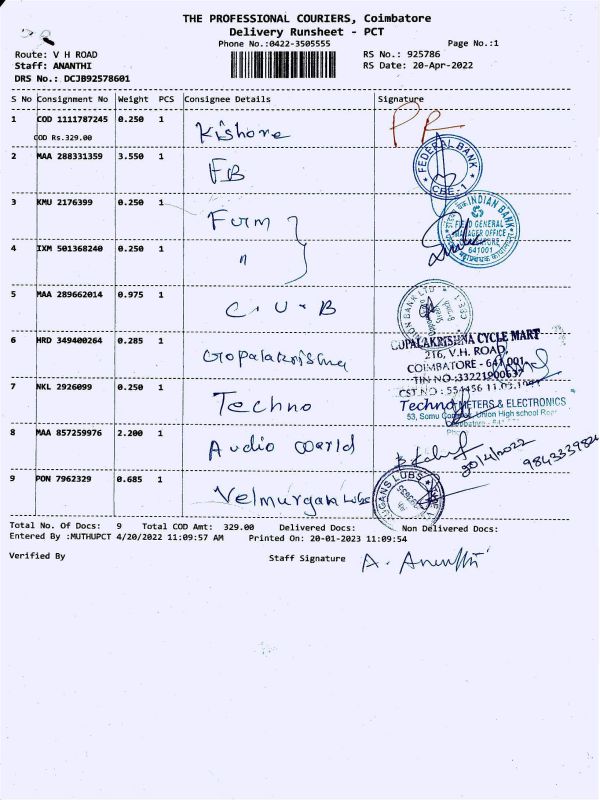 THE PROFESSIONAL COURIERS, Coimbatore
Delivery Runsheet - PCT
Phone No.:0422-3505555
Page No.:1
Route: V H ROAD
RS No.: 925786
Staff: ANANTHI
RS Date: 20-Apr-2022
DRS No.: DCJB92578601
S No Consignment No Weight PCS Consignee Details Signature
1 COD 1111787245 0.250 1 Kishore
COD Rs.329.00
2 MAA 288331359 3.550 1 FB
FEDERAL BANK
CBE-1
3 KMU 2176399 0.250 1 Furm
INDIAN BANK
FIELD GENERAL
MANAGER OFFICE
641001
4 IXM 501368240 0.250 1 "
5 MAA 289662014 0.975 1 C.U.B
6 HRD 349400264 0.285 1 Gopalakrishna
GOPALAKRISHNA CYCLE MART
216, V.H. ROAD,
COIMBATORE - 641 001
TIN NO :33221900637
CST NO : 554456
7 NKL 2926099 0.250 1 Techno
Techno METERS & ELECTRONICS
Union High school Road
8 MAA 857259976 2.200 1 Audio world
20/4/2022
9 PON 7962329 0.685 1 Velmurgan Lubs
Total No. Of Docs: 9 Total COD Amt: 329.00 Delivered Docs: Non Delivered Docs:
Entered By :MUTHUPCT 4/20/2022 11:09:57 AM Printed On: 20-01-2023 11:09:54
Verified By
Staff Signature A. Ananthi